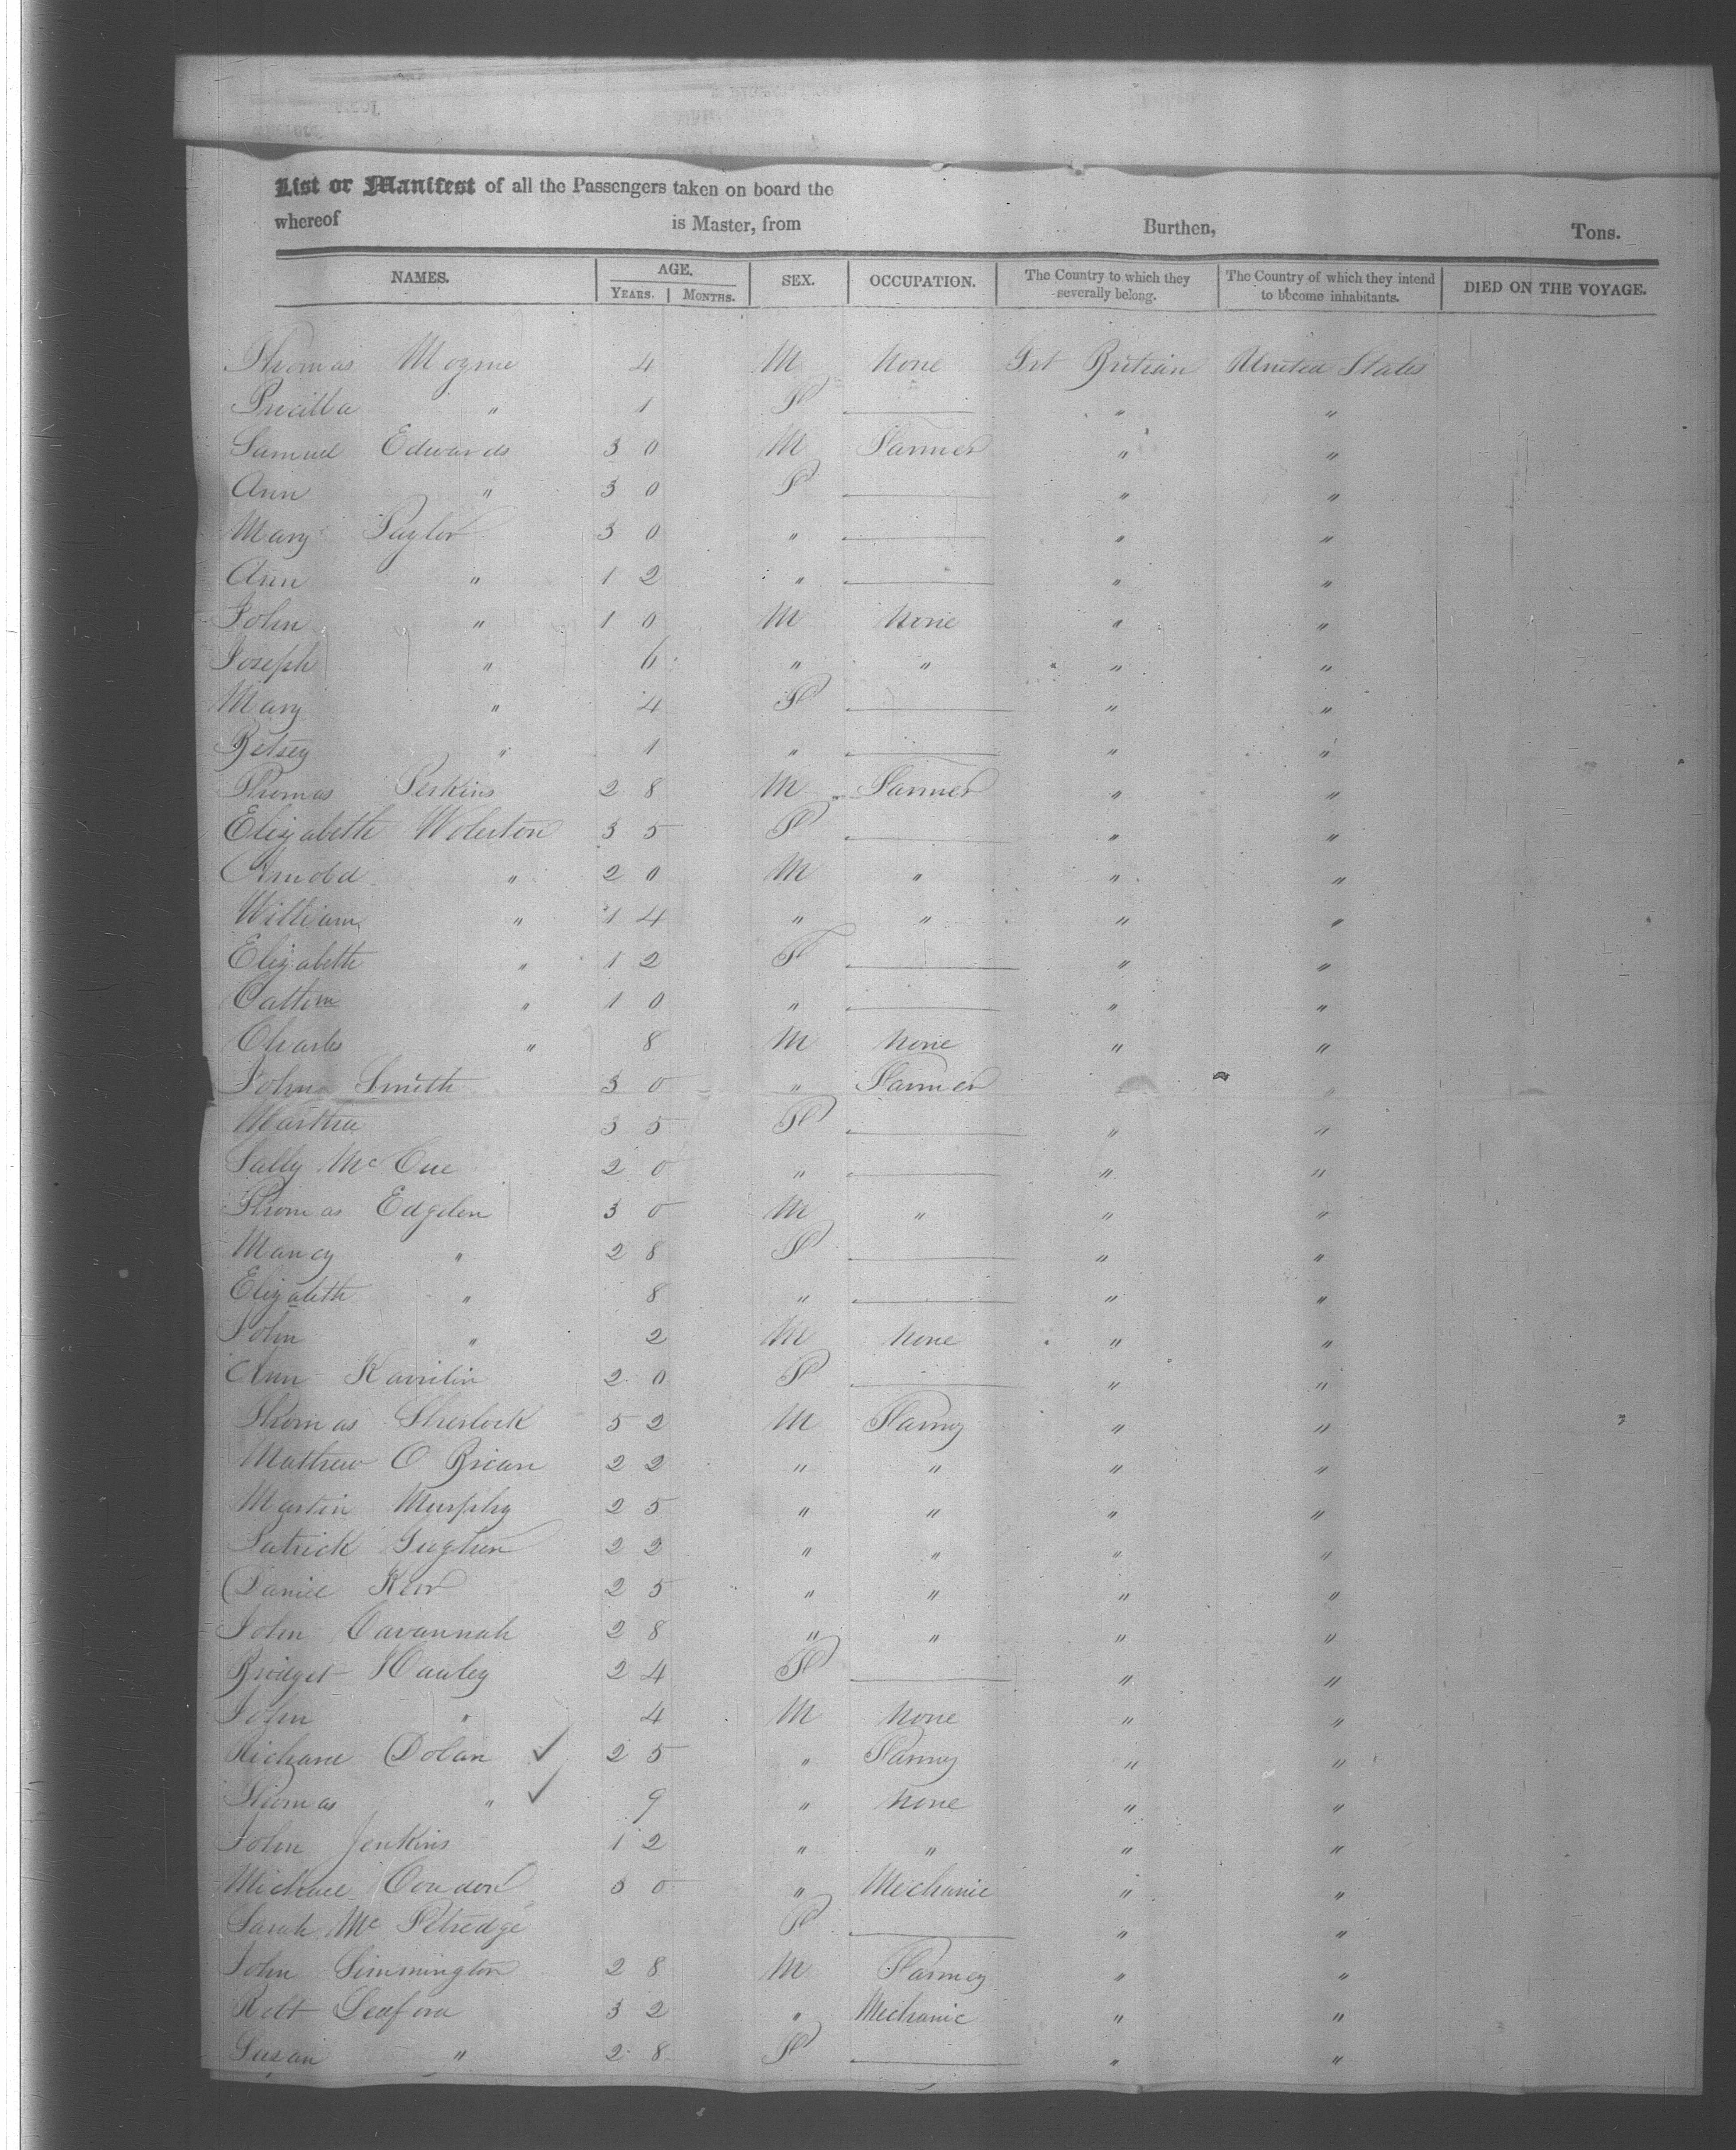 List or Manifest of all the Passengers taken on board the
whereof is Master, from Burthen, Tons.
NAMES. AGE. SEX. OCCUPATION. The Country to which they severally belong. The Country of which they intend to become inhabitants. DIED ON THE VOYAGE.
YEARS. MONTHS.
Thomas 4 M None Grt Britian United States
" 1 F " "
Samuel Edwards 30 M Farmer " "
Ann " 30 F " "
Mary Taylor 30 " " "
Ann " 12 " " "
John " 10 M None " "
Joseph " 6 " " " "
Mary " 4 F " "
Betsey " 1 " " "
Thomas Perkins 28 M Farmer " "
Elizabeth 35 F " "
Arnold " 20 M " " "
William " 14 " " " "
Elizabeth " 12 F " "
" 10 " " "
Charles " 8 M None " "
John Smith 30 " Farmer "
Martha 35 F " "
Sally McCue 20 " " "
Thomas 30 M " " "
Nancy " 28 F " "
Elizabeth " 8 " " "
John " 2 M None " "
Ann 20 F " "
Thomas Sherlock 52 M " "
Mathew O Brian 22 " " " "
Martin Murphy 25 " " " "
Patrick 22 " " " "
Daniel 25 " " " "
John Cavannah 28 " " " "
Bridget 24 F " "
John " 4 M None " "
Dolan ✓ 25 " " "
Thomas " ✓ 9 " None " "
John Jenkins 12 " " " "
" Mechanic " "
Sarah Mc F " "
John Simmington 28 M " "
Robt 32 " Mechanic " "
Susan " 28 F " "